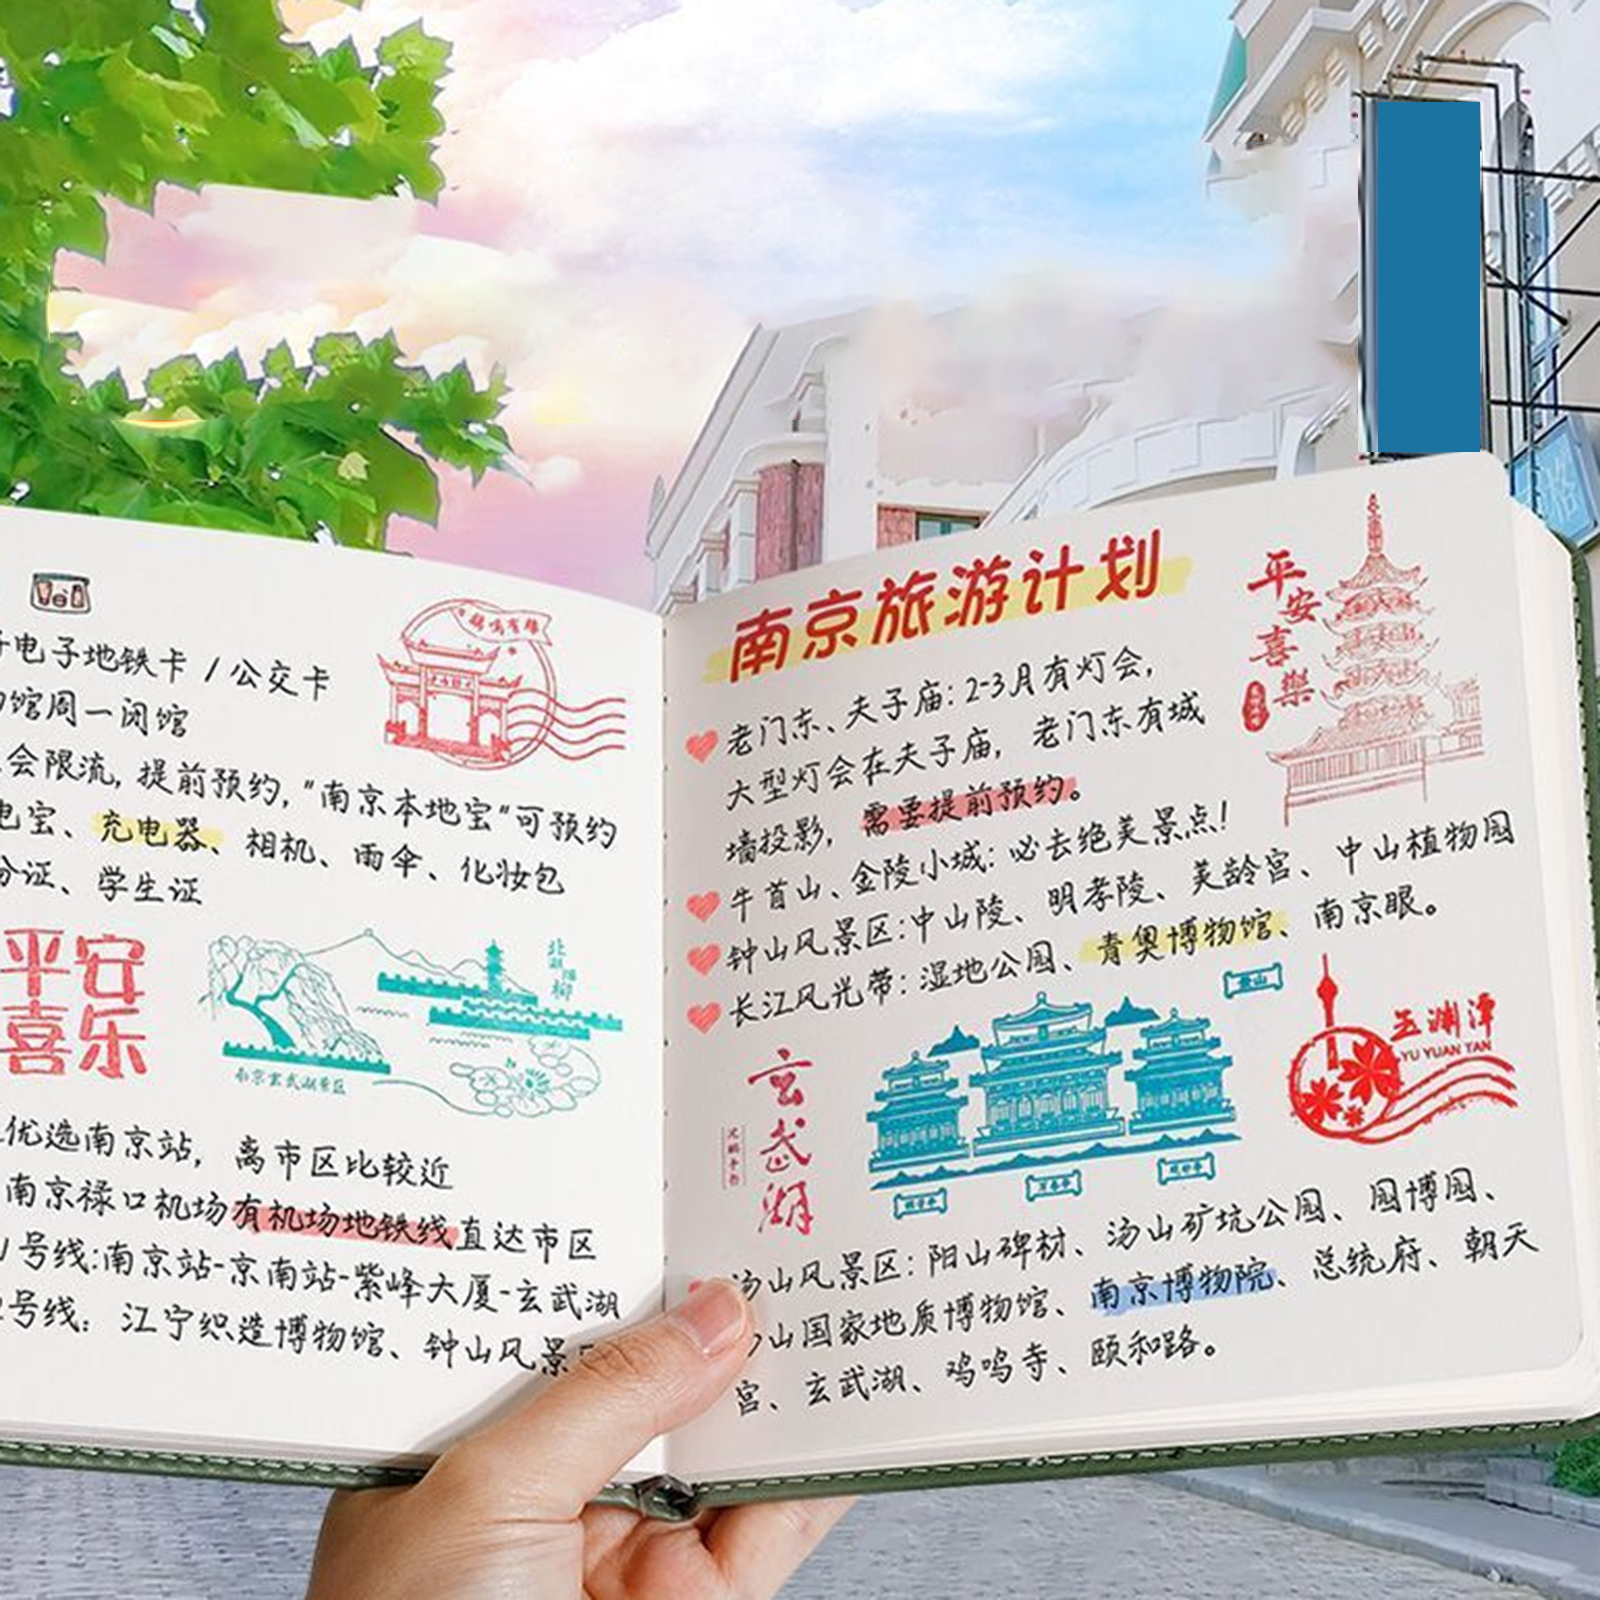 电子地铁卡 / 公交卡
馆周一闭馆
会限流, 提前预约, "南京本地宝"可预约
电宝、充电器、相机、雨伞、化妆包
分证、学生证
平安
喜乐
北湖烟柳
南京玄武湖景区
优选南京站, 离市区比较近
南京禄口机场有机场地铁线直达市区
1号线:南京站-京南站-紫峰大厦-玄武湖
2号线: 江宁织造博物馆、钟山风景
南京旅游计划
平安喜樂
老门东、夫子庙: 2-3月有灯会,
大型灯会在夫子庙, 老门东有城
墙投影, 需要提前预约。
牛首山、金陵小城: 必去绝美景点!
钟山风景区:中山陵、明孝陵、美龄宫、中山植物园
长江风光带: 湿地公园、青奥博物馆、南京眼。
景山
玄武湖
玉渊潭
YU YUAN TAN
汤山风景区: 阳山碑材、汤山矿坑公园、园博园、
山国家地质博物馆、南京博物院、总统府、朝天
宫、玄武湖、鸡鸣寺、颐和路。